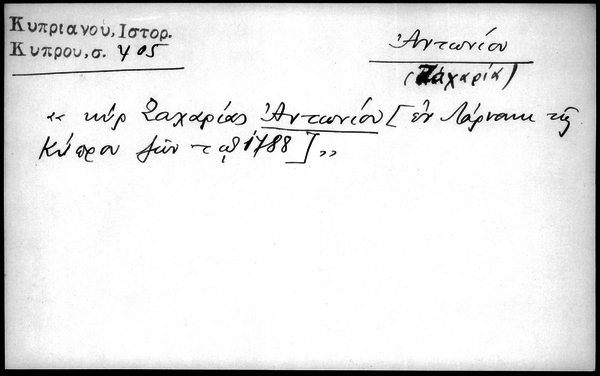 Κυπριανοῦ, Ιστορ.
Κυπρου, σ. 405
Ἀντωνίου
(Ζαχαρία)
« κὺρ Ζαχαρίας Ἀντωνίου [ἐν Λάρνακι τῆς
Κύπρου ζῶν τῷ 1788] »